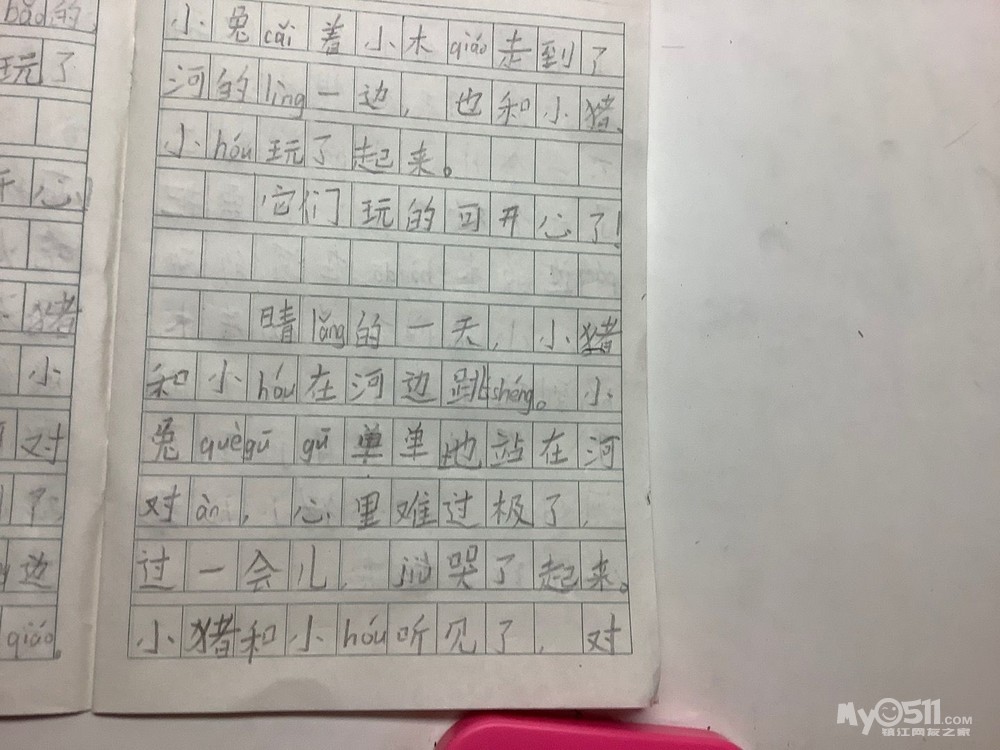 bǎo的
玩了
开心
猪
小
对
了
边
qiáo。
小兔cǎi着小木qiáo走到了
河的lìng一边，也和小猪、
小hóu玩了起来。
它们玩的可开心了！
晴lǎng的一天，小猪
和小hóu在河边跳shéng。小
兔quègū gū单单地站在河
对àn，心里难过极了，
过一会儿，jiù哭了起来。
小猪和小hóu听见了，对
My0511.com
镇江网友之家